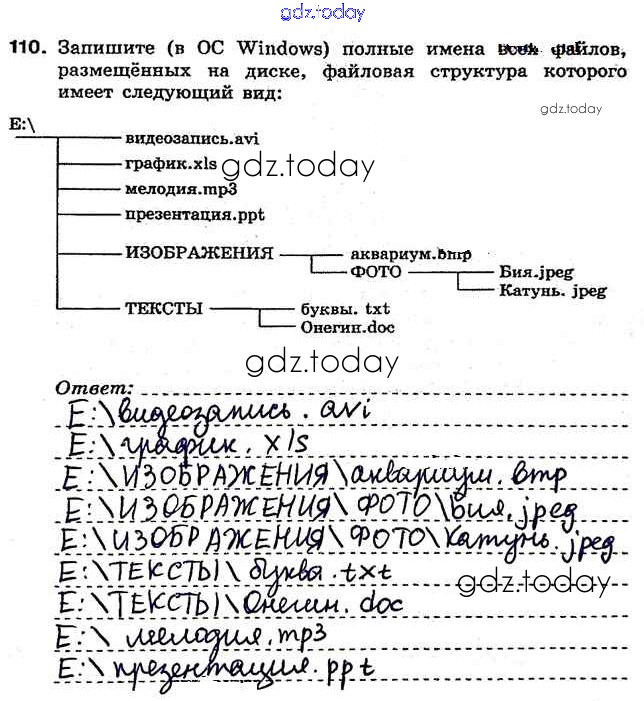 gdz.today
110. Запишите (в ОС Windows) полные имена всех файлов,
размещённых на диске, файловая структура которого
имеет следующий вид:
gdz.today
E:\
видеозапись.avi
график.xls
gdz.today
мелодия.mp3
презентация.ppt
ИЗОБРАЖЕНИЯ аквариум.bmp
ФОТО Бия.jpeg
Катунь. jpeg
ТЕКСТЫ буквы. txt
Онегин.doc
gdz.today
Ответ:
E:\видеозапись.avi
E:\график.xls
E:\ИЗОБРАЖЕНИЯ\аквариум.bmp
E:\ИЗОБРАЖЕНИЯ\ФОТО\Бия.jpeg
E:\ИЗОБРАЖЕНИЯ\ФОТО\Катунь.jpeg
E:\ТЕКСТЫ\буква.txt
gdz.today
E:\ТЕКСТЫ\Онегин.doc
E:\мелодия.mp3
E:\презентация.ppt